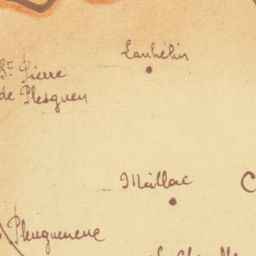 Lanhélin
St Pierre
de Plesguen
Meillac
C
Plesgueneuc